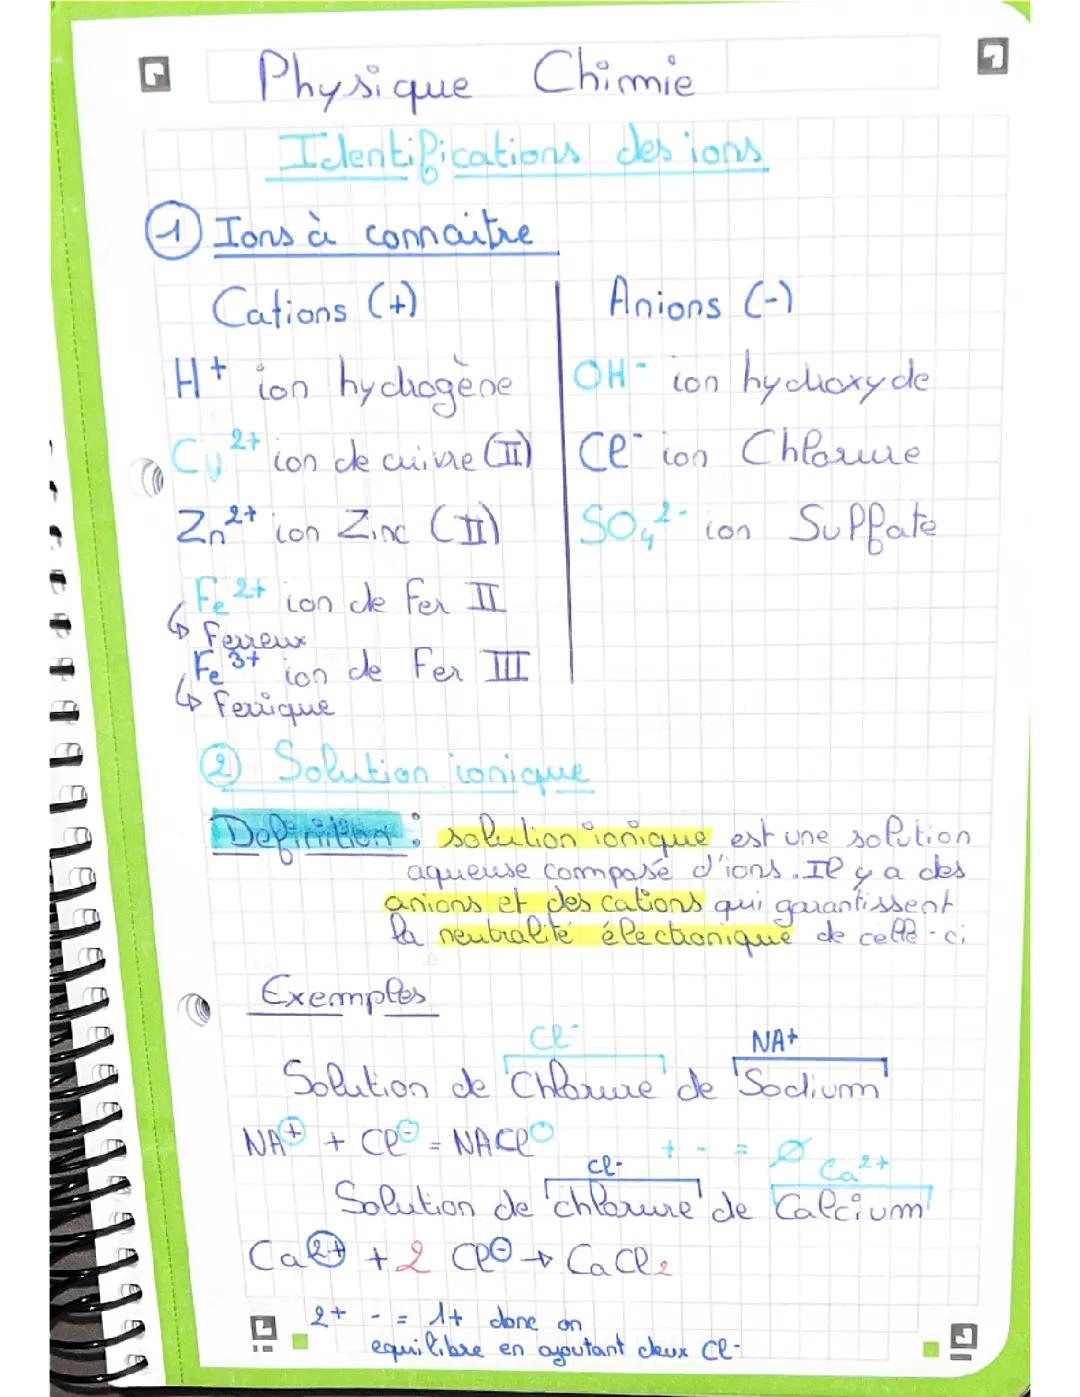 Physique Chimie
Identifications des ions
1 Ions à connaitre
Cations (+)
Anions (-)
H+ ion hydrogène
OH- ion hydroxyde
Cu2+ ion de cuivre (II)
Cl- ion Chlorure
Zn2+ ion Zinc (II)
SO4 2- ion Sulfate
Fe2+ ion de Fer II
↳ Ferreux
Fe3+ ion de Fer III
↳ Ferrique
2 Solution ionique
Definition : solution ionique est une solution
aqueuse composé d'ions. Il y a des
anions et des cations qui garantissent
la neutralité électronique de celle-ci
Exemples
Cl-
NA+
Solution de "Chlorure" de "Sodium"
NA+ + Cl- = NACl
+ - = Ø
Cl-
Ca2+
Solution de "chlorure" de "Calcium"
Ca2+ + 2 Cl- → CaCl2
2+ - = 1+ donc on
equilibre en ajoutant deux Cl-